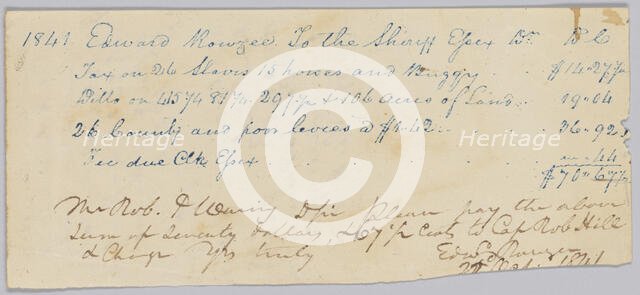 1841 Edward Rowzee To the Sheriff Essex Dr. D C
Tax on 26 Slaves 15 horses and Buggy $14"27½
Ditto on 457 4 8¼ 297½ & 106 acres of Land 19"04
26 County and poor levies a $1.42 36"92
Fee due Clk Essex " 44
$70"67½
Mr Rob. P Waring D Sir please pay the above
Sum of Seventy dollars, & 67½ Cents to Cap Rob Hill
& Charge Yrs truly Edwd Rowzee
1841